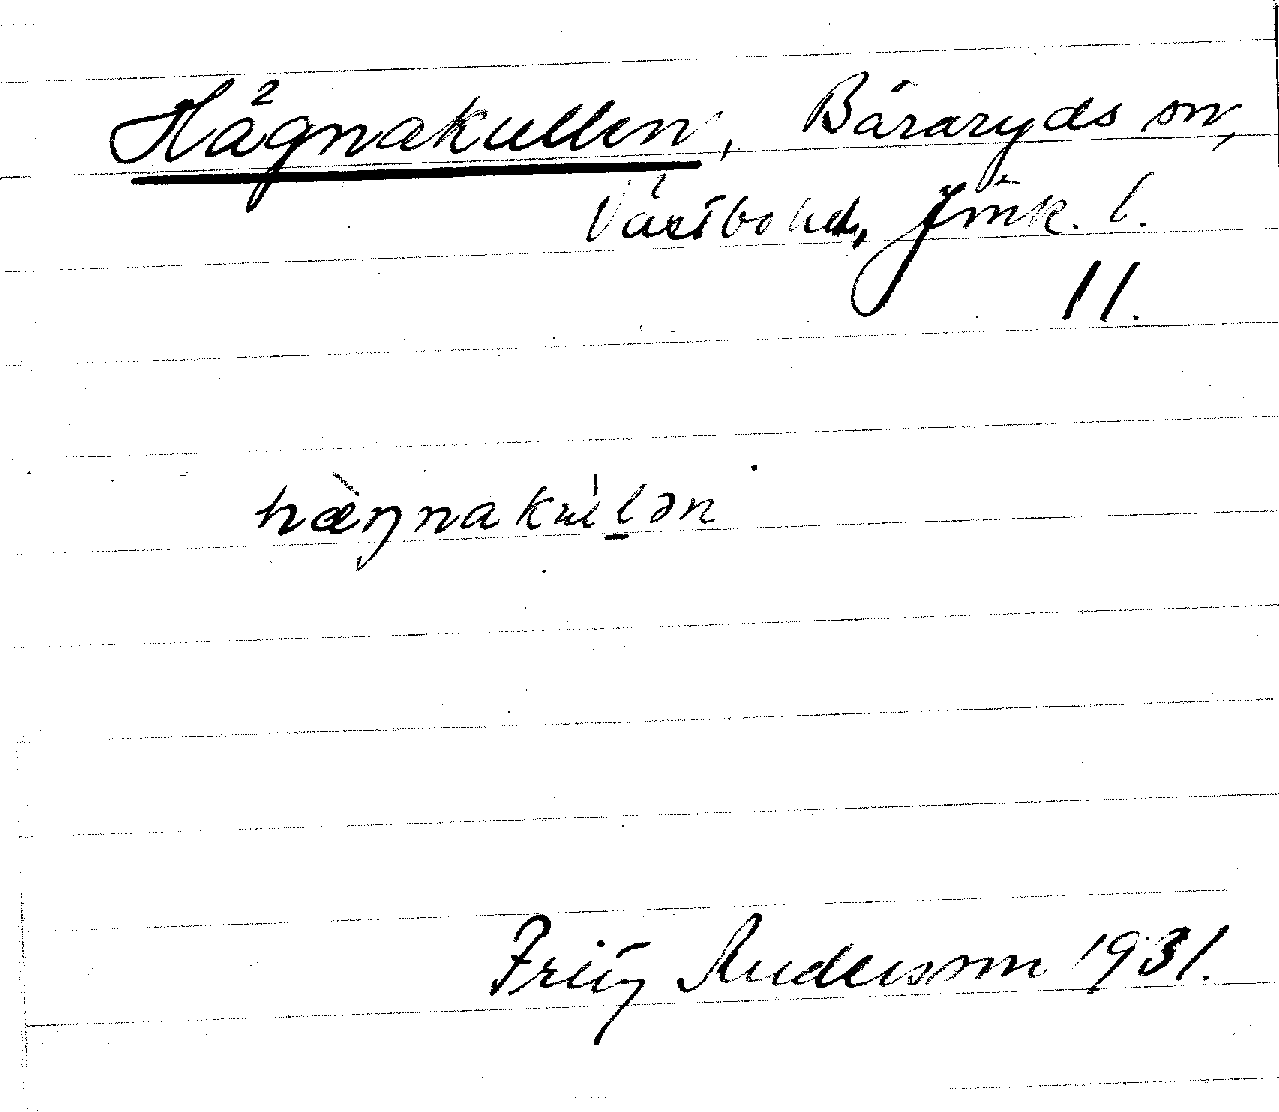 Hägnakullen, Båraryds sn,
Västbo hd, Jönk. l.
11.
hæ̀ŋnakùlən
Fritz Anderson 1931.